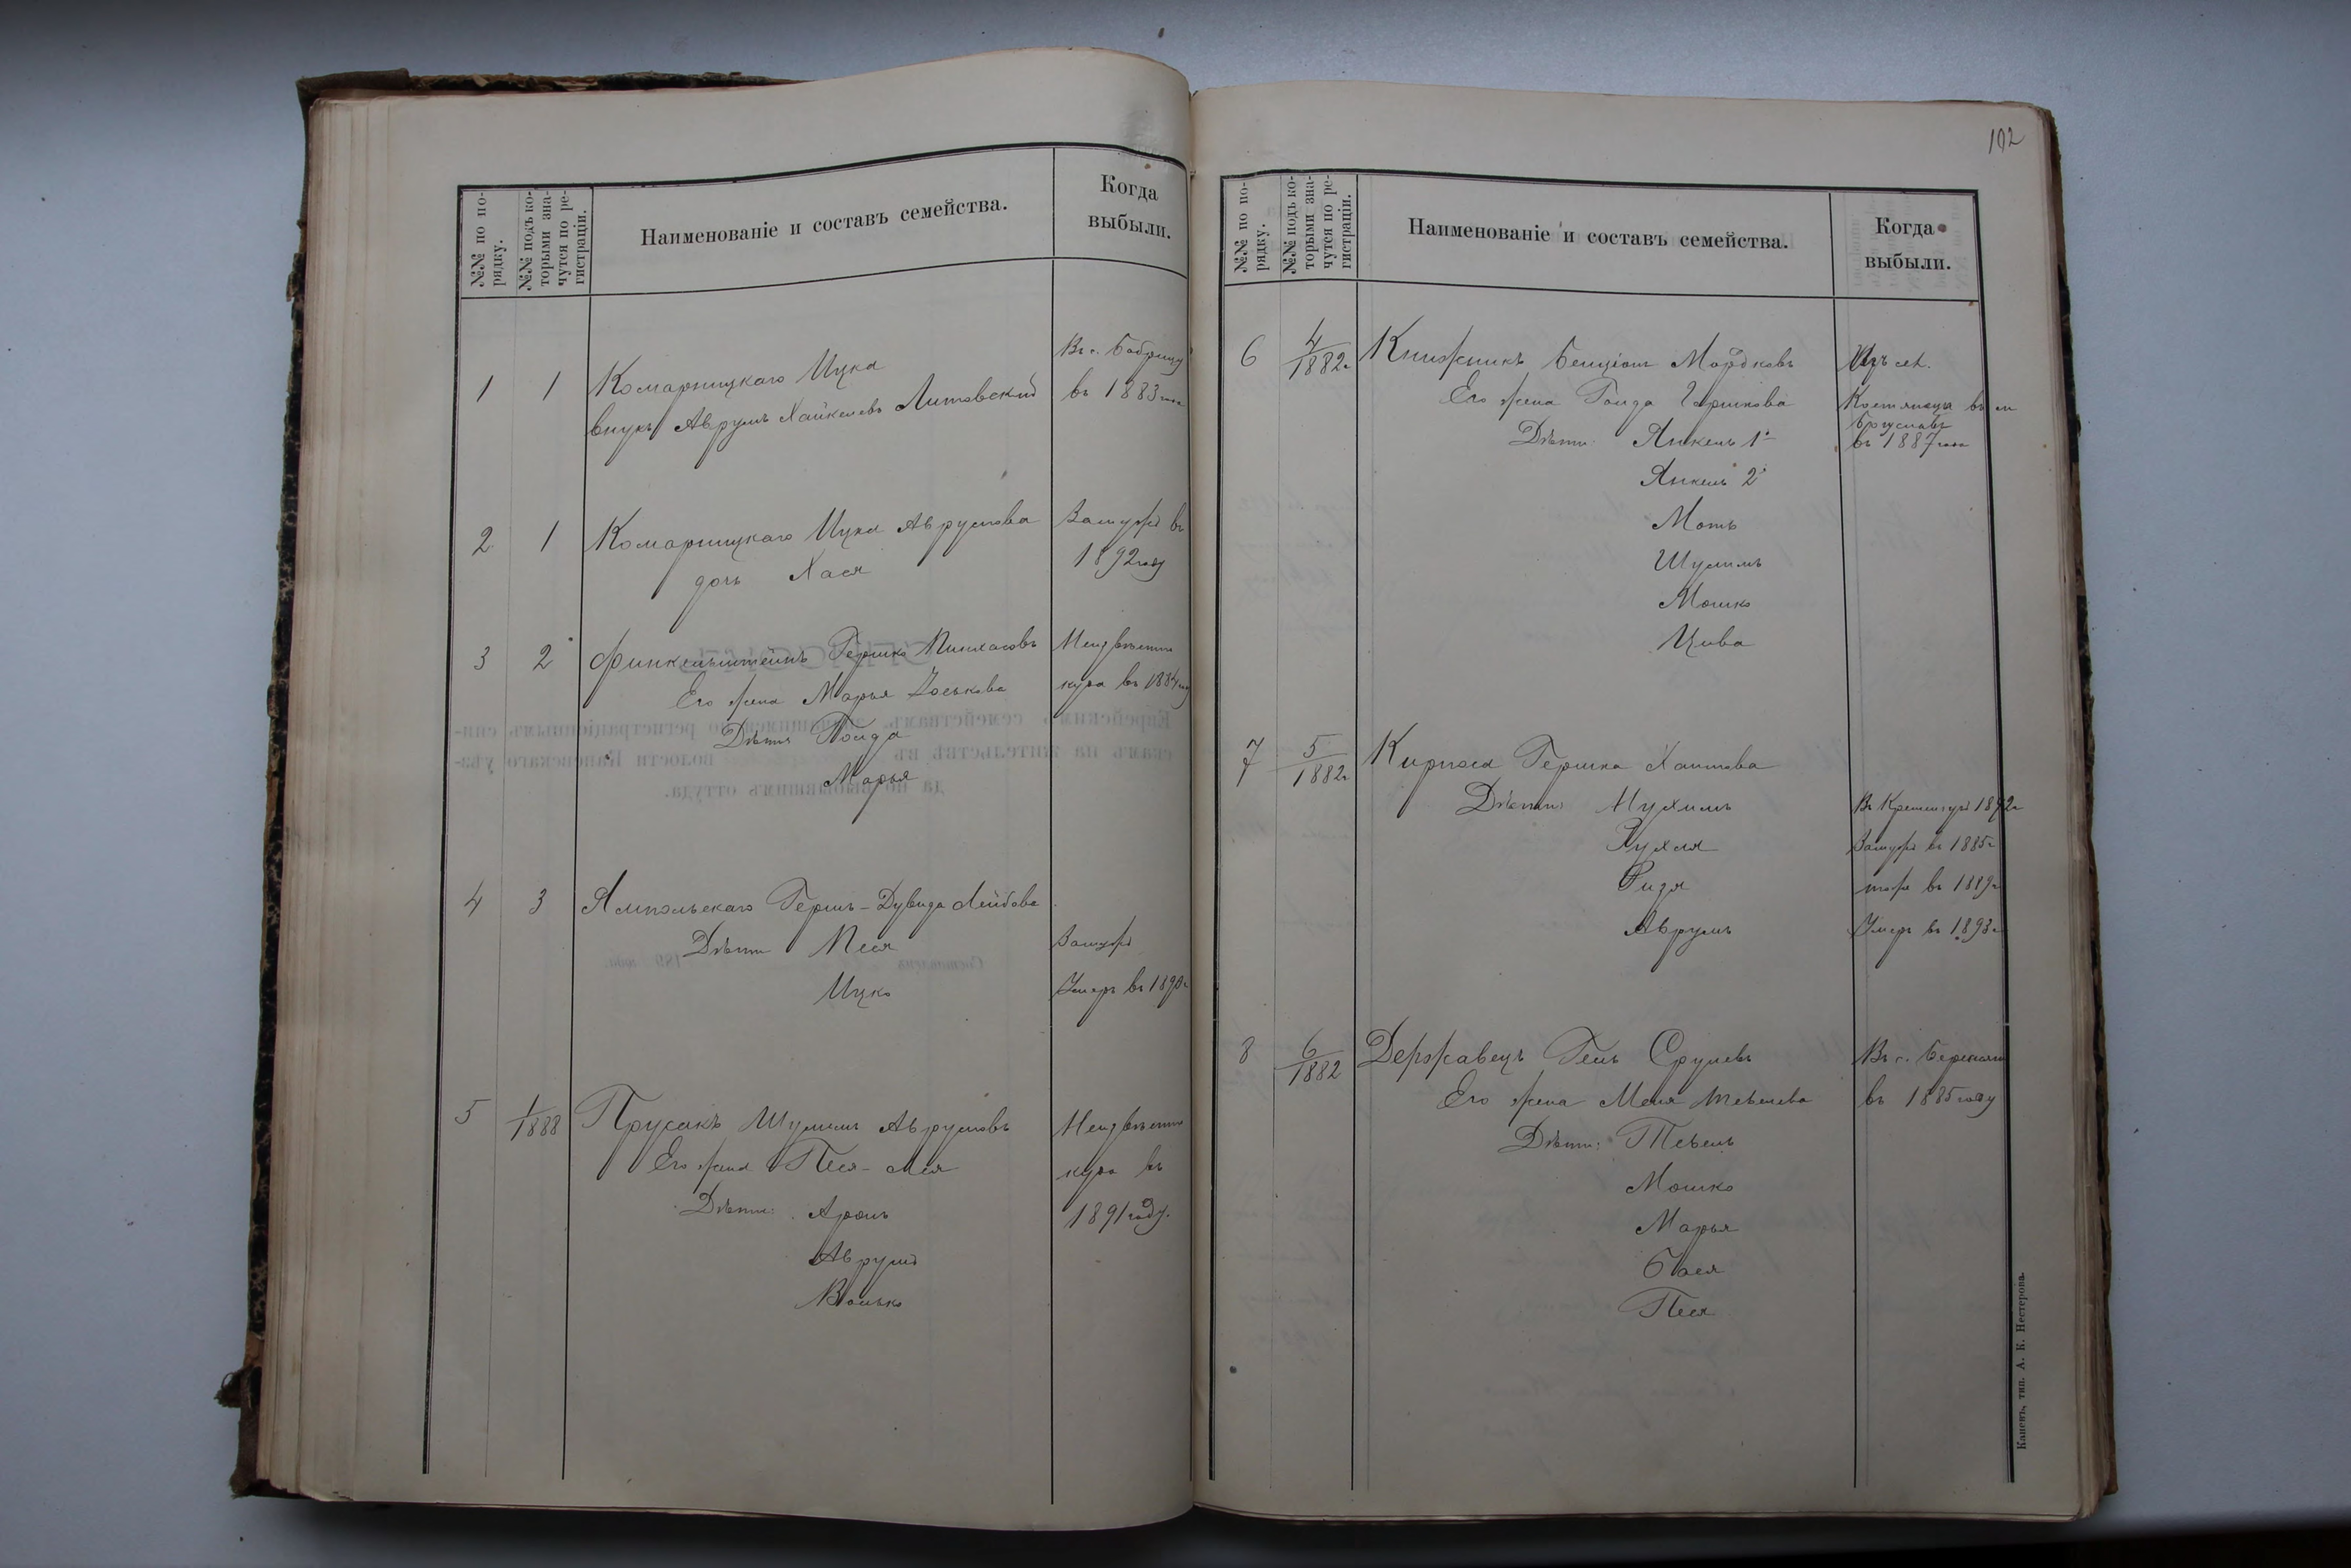 №№ по по-
рядку.
№№ подъ ко-
торыми зна-
чутся по ре-
гистраціи.
Наименованіе и составъ семейства.
Когда
выбыли.
1 1 Комарницкаго Ицка
внукъ Аврумъ Хайкелевъ Литовскій
Въ с. Бобрицу
въ 1883 году
2 1 Комарницкаго Ицка Аврумова
дочь Хася
Замужъ въ
1892 году
3 2 Финкельштейнъ Гершко Пинхасовъ
Его жена Марья Іоськова
Дѣти Гольда
Марья
Неизвѣстно
куда въ 1884 году
4 3 Ямпольскаго Гершъ-Дувида Лейбова
Дѣти Песя
Ицко
Замужъ
Умеръ въ 1890 г
5 1/1888 Прусакъ Шулимъ Аврумовъ
Его жена Песя-Лея
Дѣти: Аронъ
Аврумъ
Волько
Неизвѣстно
куда въ
1891 году.
102
№№ по по-
рядку.
№№ подъ ко-
торыми зна-
чутся по ре-
гистраціи.
Наименованіе и составъ семейства.
Когда
выбыли.
6 4/1882 г Книжникъ Бенціонъ Мордковъ
Его жена Гольда Гершкова
Дѣти: Янкель 1й
Янкель 2й
Моть
Шулимъ
Мошко
Цива
Изъ сел.
Костянца въ м
въ 1887 года
7 5/1882 г Гершка Хаимова
Дѣти: Нухимъ
Рухля
Ридя
Аврумъ
Въ Кременчугъ 1892 г
Замужъ въ 1885 г
тоже въ 1889 г
Умеръ въ 1893 г
8 6/1882 Державецъ Срулевъ
Его жена Меня Тевелева
Дѣти: Тевель
Мошко
Марья
Бася
Песя
Въ с. Березняки
въ 1885 году
Каневъ, тип. А. К. Нестерова.